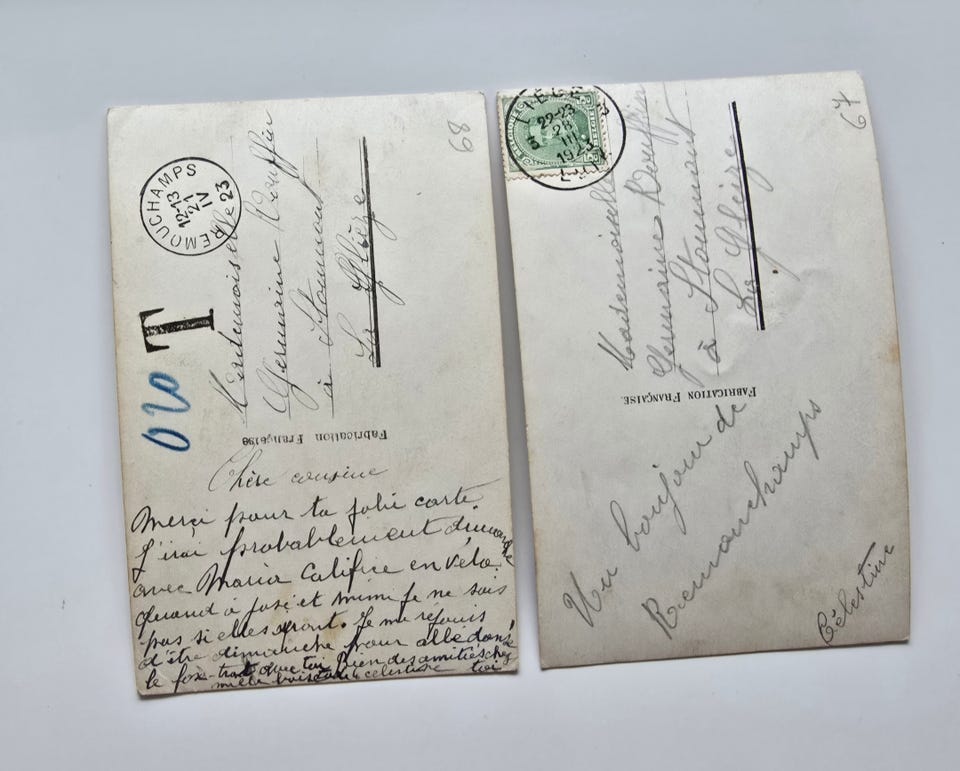 68
REMOUCHAMPS
12-13
21
IV
23
T
020
Mademoiselle
Germaine
à Stoumont
La Gleize
Fabrication Française
Chère cousine
Merci pour ta jolie carte
J'irai probablement dimanche
avec Maria Califice en vélo.
quand à José et Mimi je ne sais
pas si elles iront. Je me réjouis
d'être dimanche pour allé dansé
le fox-trot avec toi Bien des amitiés chez
mille baisers de Célestine toi
67
LIEGE
22-23
28
III
1923
Mademoiselle
Germaine
à Stoumont
La Gleize
FABRICATION FRANÇAISE.
Un bonjour de
Remouchamps
Célestine